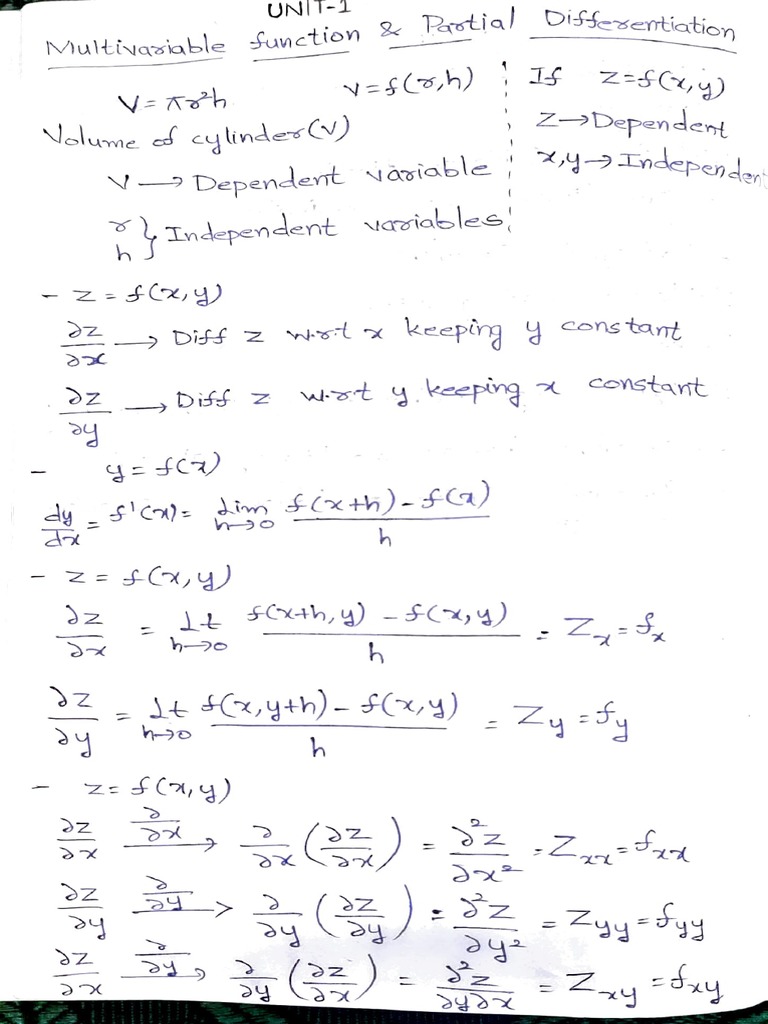 UNIT-1
Multivariable function & Partial Differentiation
V = πr²h V = f(r,h)
Volume of cylinder(V)
V → Dependent variable
r
h } Independent variables
If z=f(x,y)
Z → Dependent
x,y → Independent
- z = f(x,y)
∂z/∂x → Diff z w.r.t x keeping y constant
∂z/∂y → Diff z w.r.t y keeping x constant
- y = f(x)
dy/dx = f'(x) = lim h→0 (f(x+h) - f(x))/h
- z = f(x,y)
∂z/∂x = Lt h→0 (f(x+h,y) - f(x,y))/h = Zx = fx
∂z/∂y = Lt h→0 (f(x,y+h) - f(x,y))/h = Zy = fy
- z = f(x,y)
∂z/∂x ∂/∂x → ∂/∂x (∂z/∂x) = ∂²z/∂x² = Zxx = fxx
∂z/∂y ∂/∂y → ∂/∂y (∂z/∂y) = ∂²z/∂y² = Zyy = fyy
∂z/∂x ∂/∂y → ∂/∂y (∂z/∂x) = ∂²z/∂y∂x = Zxy = fxy